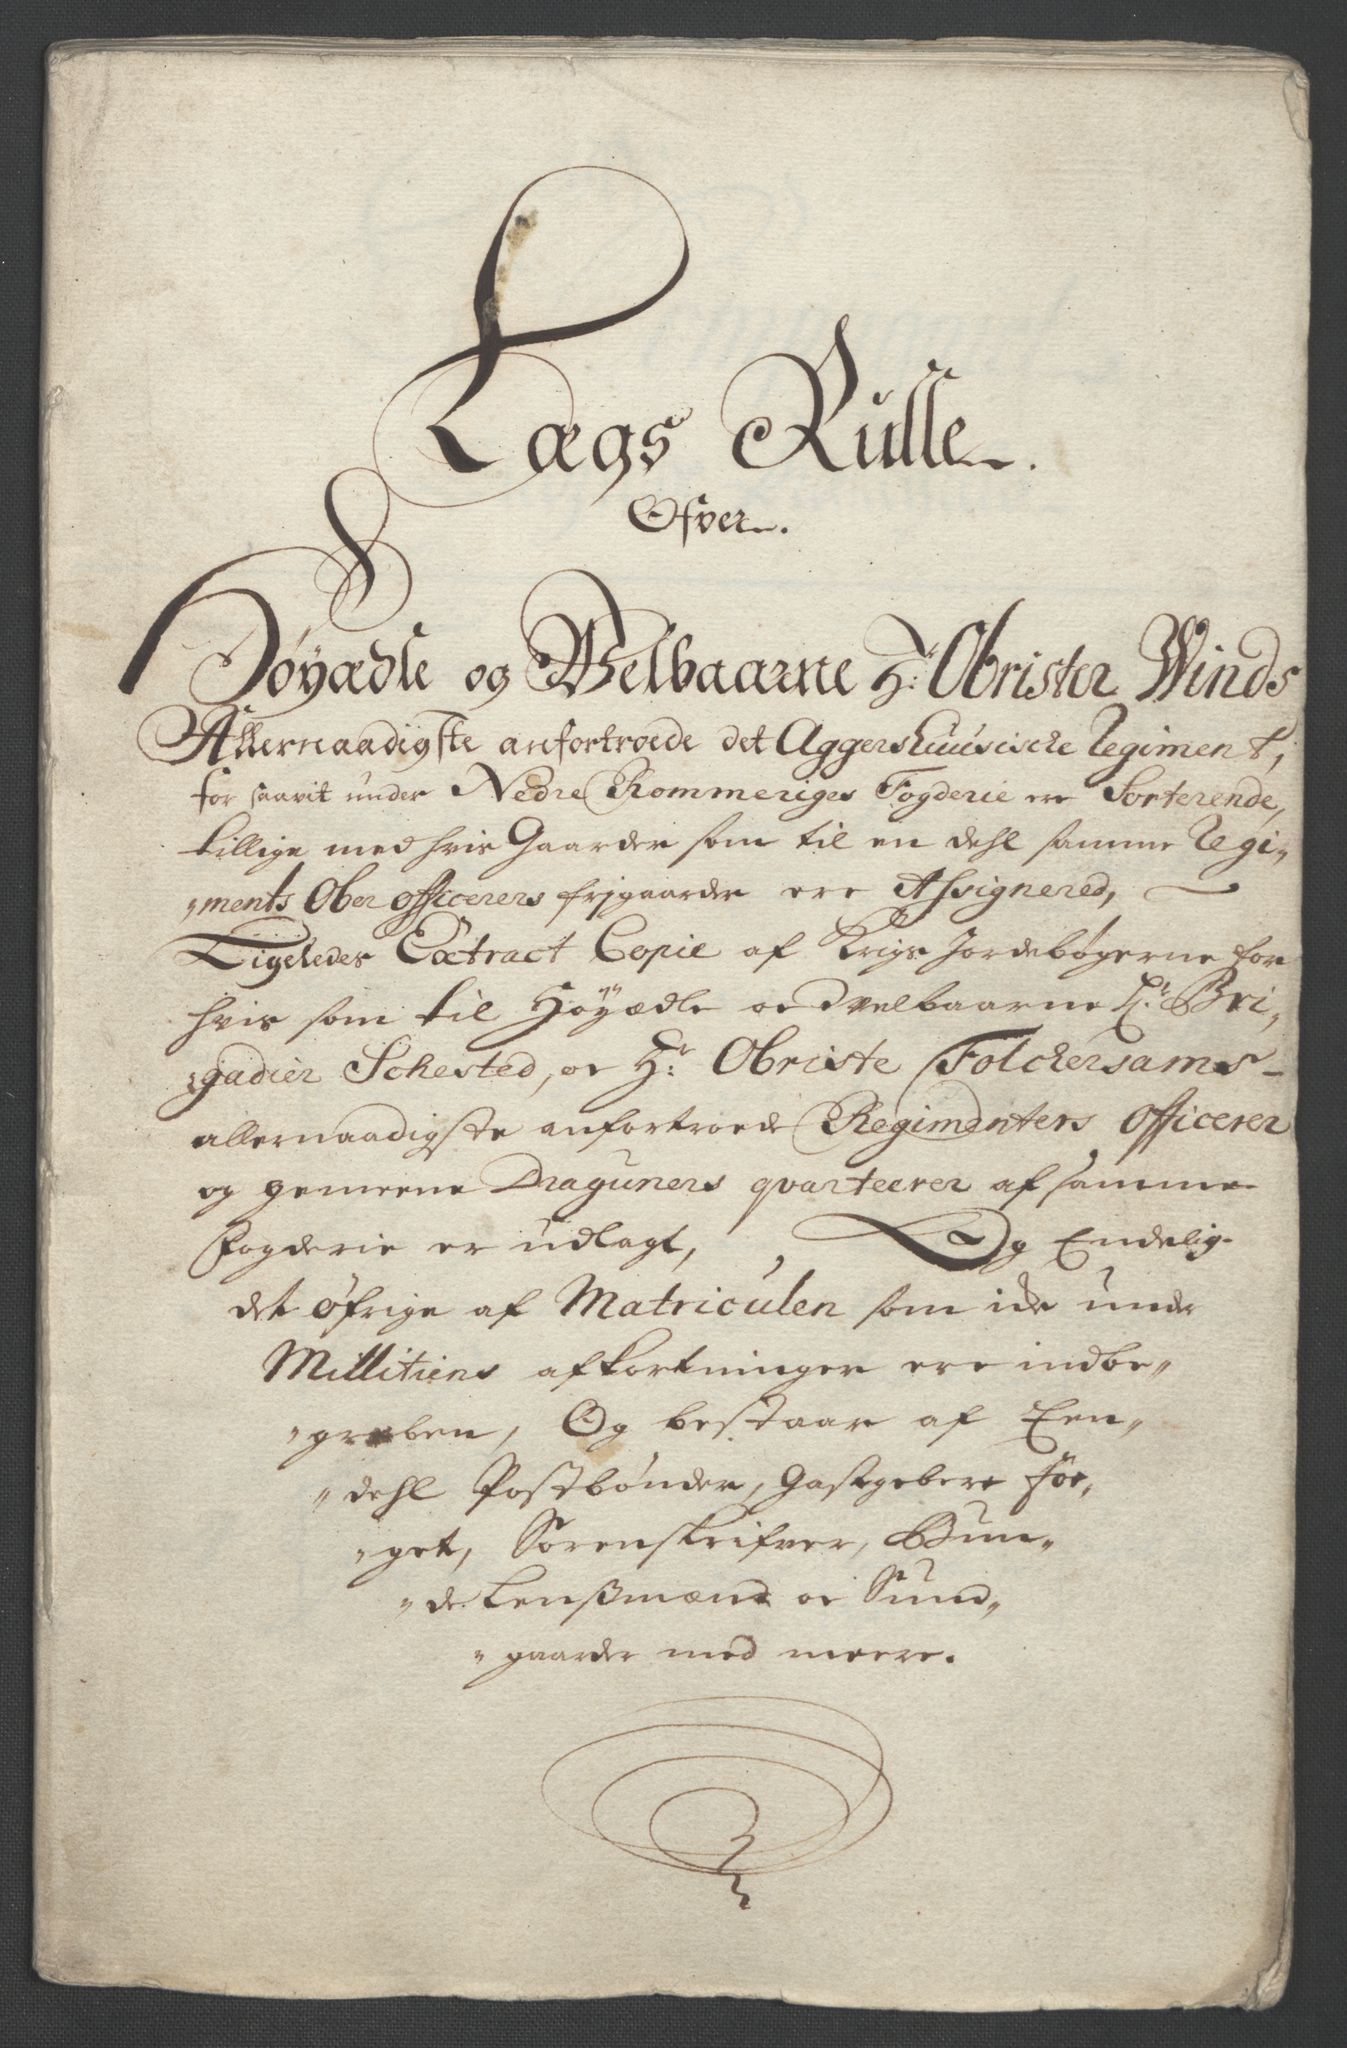 Lægs Rulle.
Ofver.
Høyædle og Welbaarne Hr: Obrister Winds
Allernaadigste anfortroede det Aggershuusische Regiment,
for saavit under Nedre Rommeriges Fogderie ere Sorterende,
tillige med hvis Gaarder som til en dehl samme Regi-
"ments Ober officerers frjgaarder ere Assignered,
Ligeledes Extract Copie af Krigs Jordebøgerne for
hvis som til Høyædle oc velbaarne Hr: Bri,
"gadier Schested, oc Hr: Obriste Folckersams
allernaadigste anfortroede Regimenters Officerer
og gemeene Draguners qvarteerer af samme
Fogderie er udlagt, Og Endelig
det øfrige af Matriculen som icke under
Millitiens afkortninger ere indbe-"
"greben, Og bestaar af Een"
"dehl Postbønder, Gastgebere Foe"
"get, Sorenskrifver, Bun"
"de Lenßmænd oc Sund"
"gaarder med meere.